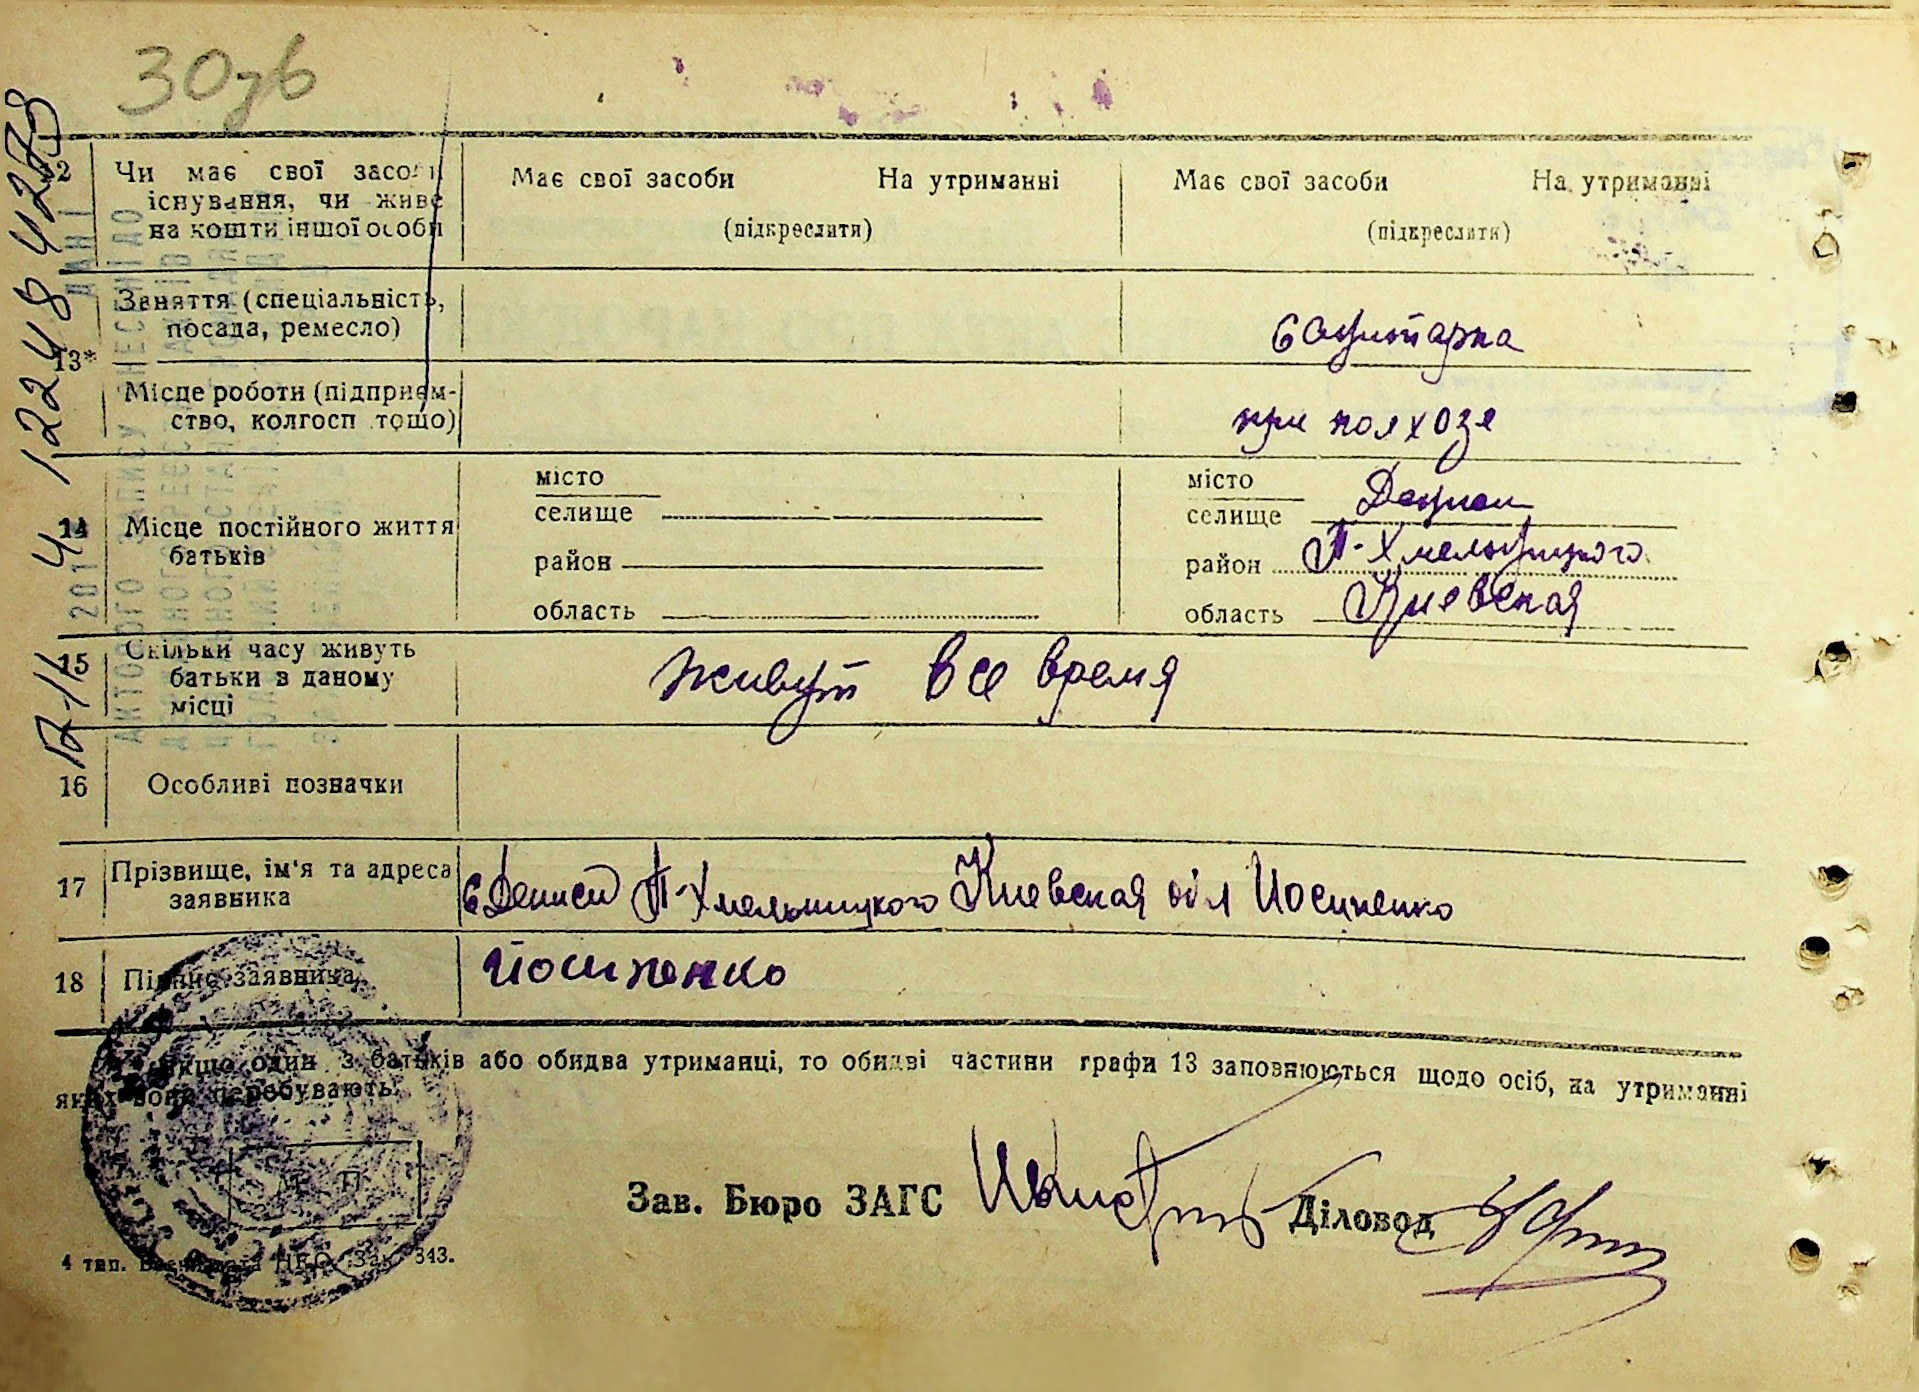 30зв
12 Чи має свої засоби Має свої засоби На утриманні Має свої засоби На утриманні
існування, чи живе
на кошти іншої особи (підкреслити) (підкреслити)
Заняття (спеціальність,
посада, ремесло) санитарка
13*
Місце роботи (підприєм-
ство, колгосп тощо) при
місто місто
селище селище
14 Місце постійного життя
батьків
район район П-Хмельницкого
область область Киевская
15 Скільки часу живуть
батьки в даному живут все время
місці
16 Особливі позначки
17 Прізвище, ім'я та адреса
заявника с Дениси П-Хмельницкого Киевская обл Иосипенко
18 Підпис заявника Йосипенко
* Якщо один з батьків або обидва утриманці, то обидві частини графи 13 заповнюються щодо осіб, на утриманні
яких вони перебувають.
М. П.
Зав. Бюро ЗАГС Діловод
4 тип. Зак. 343.